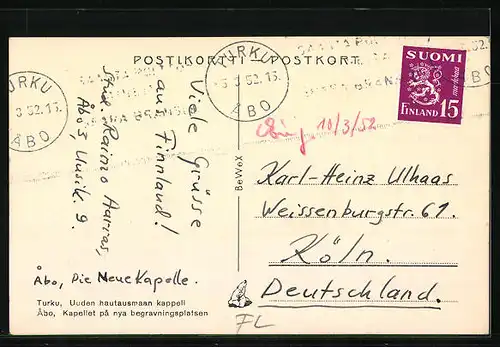 POSTIKORTTI POSTKORT
TURKU
ÅBO
TURKU
52.15
ÅBO
SUOMI
FINLAND 15
10/3/52
Viele Grüsse
aus Finnland!
Raimo Harras,
Åbo 3 Uusik. 9.
Karl-Heinz Ulhaas
Weissenburgstr. 61.
Köln.
Deutschland.
BeWeX
Åbo, Die Neue Kapelle.
Turku, Uuden hautausmaan kappeli
Åbo, Kapellet på nya begravningsplatsen
FL